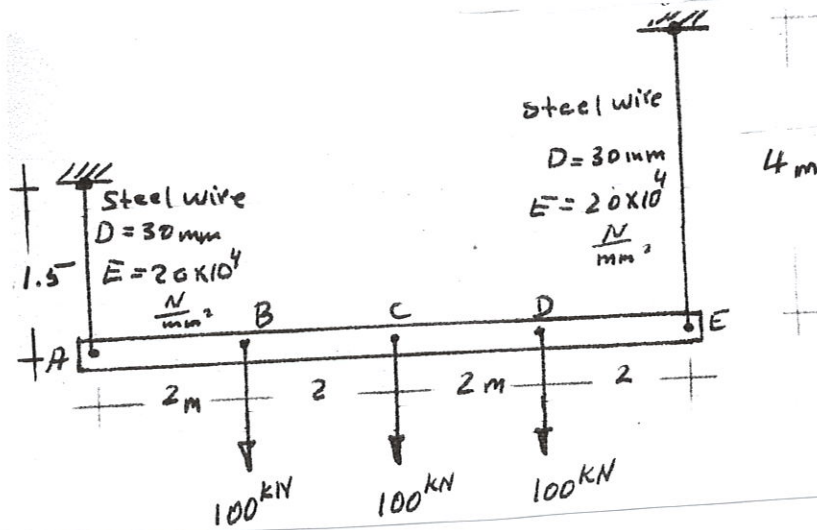 Steel wire
D = 30 mm
E = 20×10⁴
N
mm²
4 m
Steel wire
D = 30 mm
E = 20×10⁴
N
mm²
1.5
A
B
C
D
E
2 m
2
2 m
2
100 kN
100 kN
100 kN